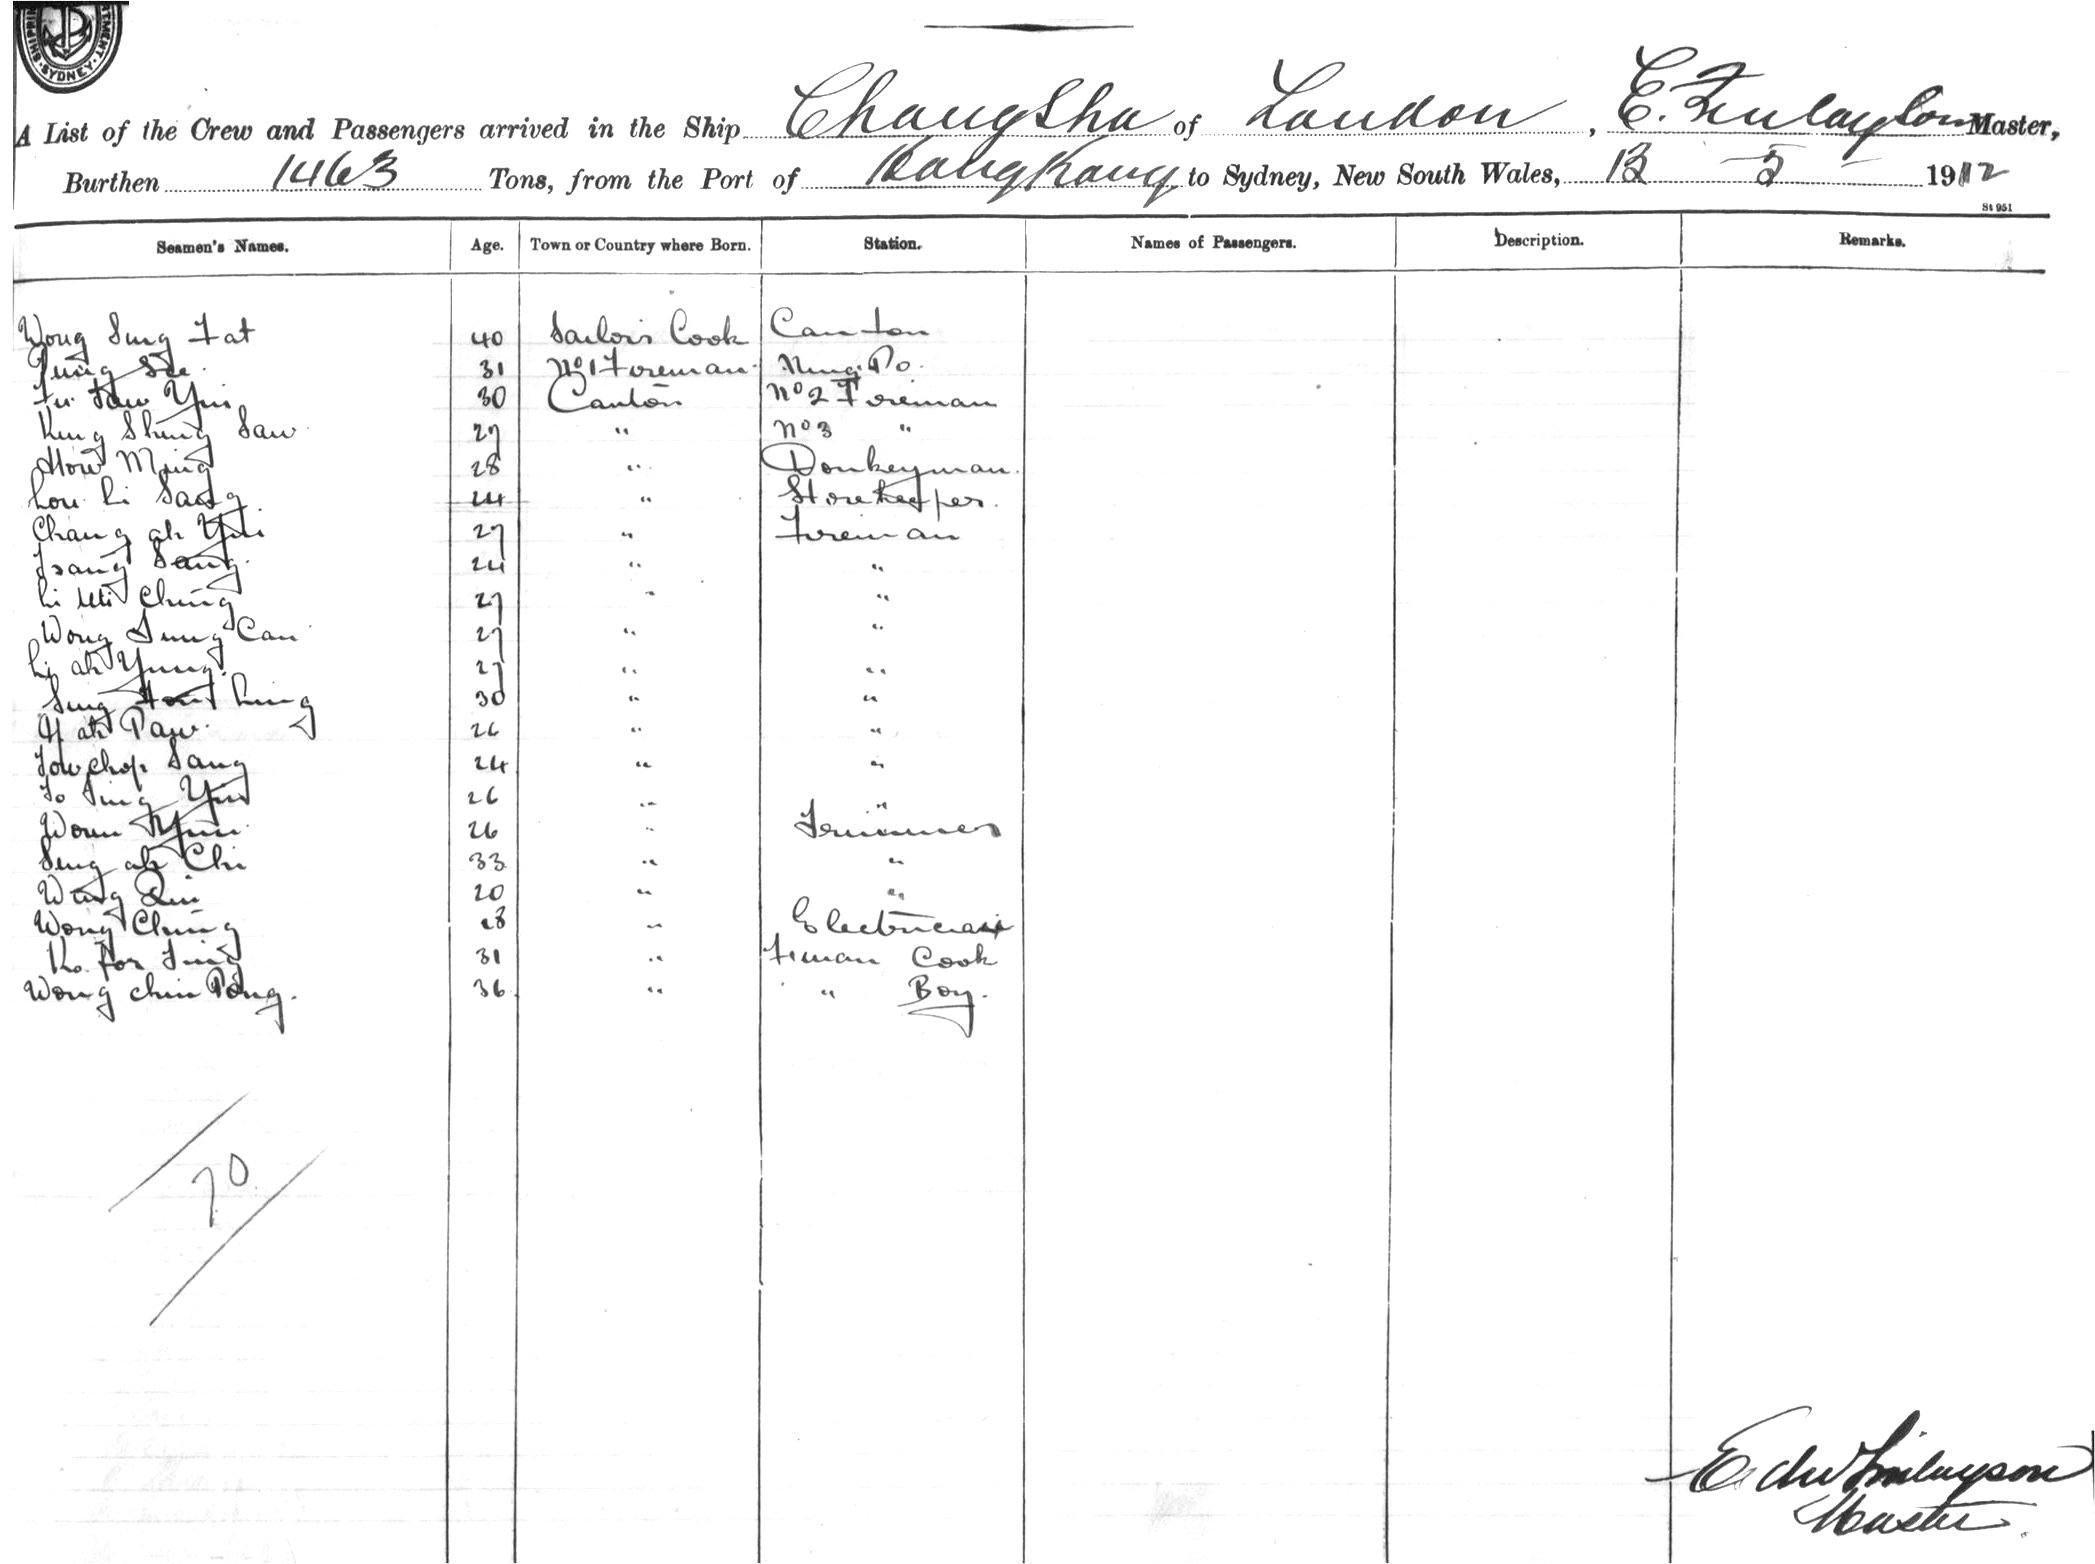 SHIPPING DEPARTMENT SYDNEY
A List of the Crew and Passengers arrived in the Ship Changsha of London, E. Finlayson Master,
Burthen 1463 Tons, from the Port of HongKong to Sydney, New South Wales, 13 - 5 - 1912
St 951
Seamen's Names. Age. Town or Country where Born. Station. Names of Passengers. Description. Remarks.
Wong Sung Fat 40 Sailors Cook Canton
31 No 1 Foreman Ning Po
30 Canton No 2 Foreman
Kung Shing Saw 27 " No 3 "
How Ming 28 " Donkeyman
Lou Li Sang 24 " Storekeeper
Chang ah Yui 27 " Fireman
Tsang Sang 24 " "
Li Wi Ching 27 " "
Wong Sung Can 27 " "
Li ah Yung 27 " "
Sung How Ling 30 " "
ah Paw 26 " "
Tow chop Sang 24 " "
To Ting Yui 26 " "
26 " Trimmer
Sung ah Chi 33 " "
Wang 20 " "
Wong Ching 28 " Electrician
Ko Fox Ting 31 " Fireman Cook
Wong chin Pong. 36 " " Boy.
70
Edw Finlayson
Master